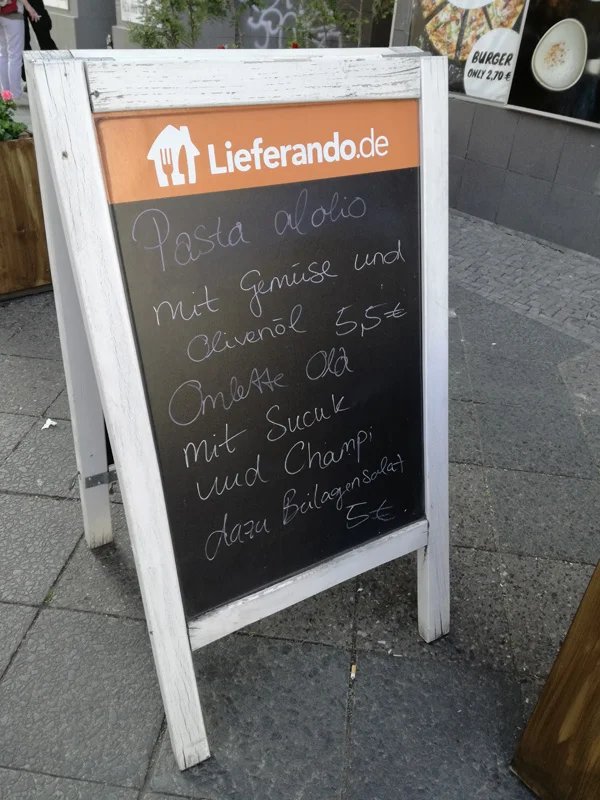 BURGER
ONLY 2,70 €
Lieferando.de
Pasta alolio
mit Gemüse und
Olivenöl 5,5€
Omlette Old
mit Sucuk
und Champi
dazu Beilagensalat
5€.